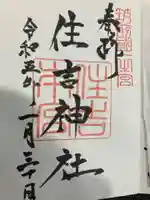 筑前國一之宮
奉拝
住吉神社
令和五年一月三十日